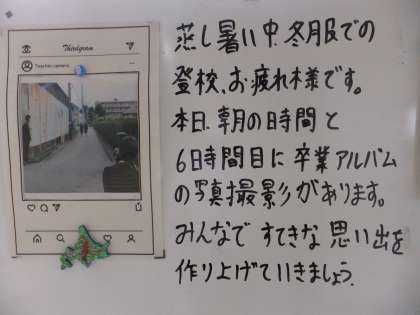 Thirdgram
Teacher camera
蒸し暑い中、冬服での
登校、お疲れ様です。
本日、朝の時間と
6時間目に卒業アルバム
の写真撮影があります。
みんなですてきな思い出を
作り上げていきましょう。